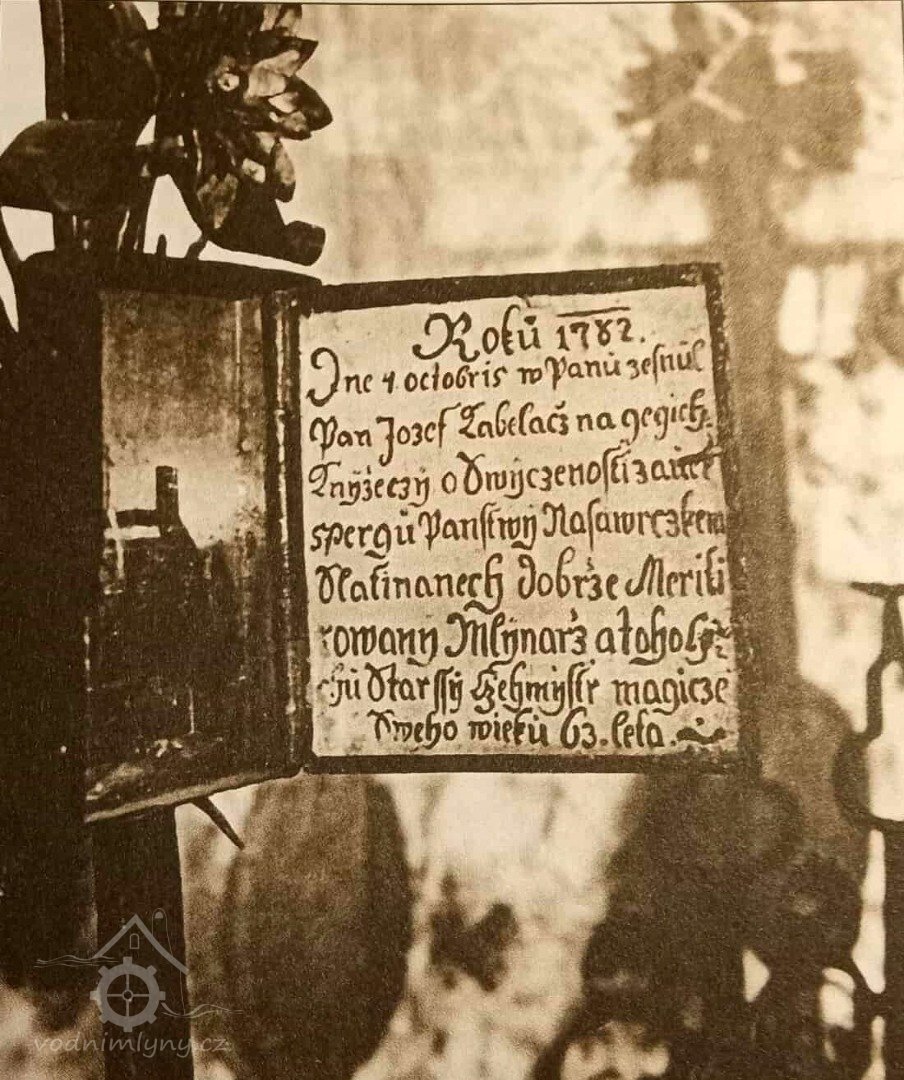 Rokú 1782.
Dne 4 octobris w Panú zesnúl
Pan Jozef Zabelacž na gegich
Knyžeczý oSwýczenosti zauer
spergú Panstwý Nasawrczkem
Slatinanech dobrže Meriti
rowaný Mlýnarž a toho
chú Starssý Czehmystr magicze
Sweho wiekú 63. leta.
vodnimlyny.cz